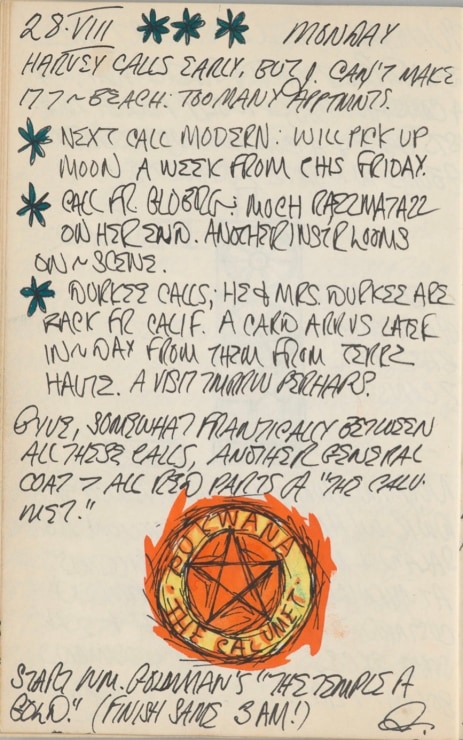 28·VIII *** MONDAY
HARVEY CALLS EARLY, BUT I CAN'T MAKE
IT T~BEACH: TOO MANY APPTMNTS.
* NEXT CALL MODERN: WILL PICK UP
MOON A WEEK FROM THIS FRIDAY.
* CALL FR. : MUCH RAZZMATAZZ
ON HER END. ANOTHER INST. LOOMS
ON ~ SCENE.
* DURKEE CALLS; HE & MRS. DURKEE ARE
BACK FR CALIF. A CARD ARRVS LATER
IN ~ DAY FROM THEM FROM TERRE
HAUTE. A VISIT TMRRW PERHAPS?
GIVE, SOMEWHAT FRANTICALLY BETWEEN
ALL THESE CALLS, ANOTHER GENERAL
COAT T ALL RED PARTS O "THE CALU-
MET."
PUKWANA
THE CALUMET
START WM. GOLDMAN'S "THE TEMPLE O
GOLD." (FINISH SAME 3 AM!)